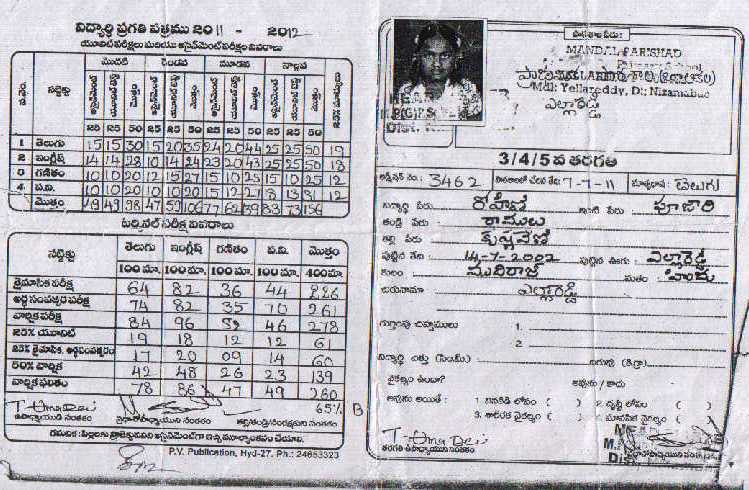 విద్యార్థి ప్రగతి పత్రము 2011 - 2012
యూనిట్ పరీక్షలు మరియు అసైన్‌మెంట్ పరీక్షల వివరాలు
మొదటి రెండవ మూడవ నాల్గవ
సబ్జెక్టు
25 25 50 25 25 50 25 25 50 25 25 50
1 తెలుగు 15 15 30 15 20 35 24 20 44 25 25 50 19
2 ఇంగ్లీష్ 14 14 28 10 14 24 23 20 43 25 25 50 18
3 గణితం 10 10 20 12 15 27 15 10 25 15 10 25 12
4 ప.వి. 10 10 20 10 10 20 15 12 27 18 13 31 12
మొత్తం 49 49 98 47 59 106 77 62 139 83 73 156
టెర్మినల్ పరీక్ష వివరాలు
సబ్జెక్టు తెలుగు ఇంగ్లీష్ గణితం ప.వి. మొత్తం
100 మా. 100 మా. 100 మా. 100 మా. 400 మా.
త్రైమాసిక పరీక్ష 64 82 36 44 226
అర్ధ సంవత్సర పరీక్ష 74 82 35 70 261
వార్షిక పరీక్ష 84 96 52 46 278
25% యూనిట్ 19 18 12 12 61
25% త్రైమాసిక, అర్ధసంవత్సరం 17 20 09 14 60
50% వార్షిక 42 48 26 23 139
వార్షిక ఫలితం 78 86 47 49 260
65% B
T. Uma Devi
ఉపాధ్యాయుని సంతకం ప్రధానోపాధ్యాయుని సంతకం తల్లి/తండ్రి/సంరక్షకుని సంతకం
P.V. Publication, Hyd-27. Ph.: 24653323
పాఠశాల పేరు:
MANDAL PARISHAD
Mdl: Yellareddy, Dt: Nizamabad
ఎల్లారెడ్డి
3/4/5 వ తరగతి
అడ్మిషన్ నెం.: 3462 పాఠశాలలో చేరిన తేది: 7-7-11 మాతృభాష: తెలుగు
విద్యార్థి పేరు రోహిణి ఇంటి పేరు పూజారి
తండ్రి పేరు రాములు
తల్లి పేరు కృష్ణవేణి
పుట్టిన తేది 14-7-2002 పుట్టిన ఊరు ఎల్లారెడ్డి
కులం మునిరాజ్ మతం హిందు
చిరునామా ఎల్లారెడ్డి
గుర్తింపు చిహ్నములు 1.
2.
విద్యార్థి ఎత్తు (సెం.మీ) బరువు (కి.గ్రా)
వైకల్యం ఉందా? అవును / కాదు
అవును అయితే : 1. వినికిడి లోపం ( ) 2. దృష్టి లోపం ( )
3. శారీరక వైకల్యం ( ) 4. మానసిక వైకల్యం ( )
T. Uma Devi
తరగతి ఉపాధ్యాయుని సంతకం